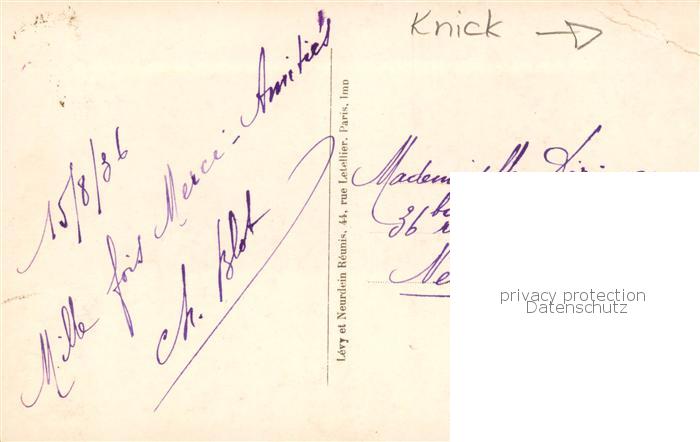 Knick →
15/8/36
Mille fois Merci - Amitiés
Ch. Blot
Lévy et Neurdein Réunis, 44, rue Letellier, Paris, Imp
36
privacy protection
Datenschutz